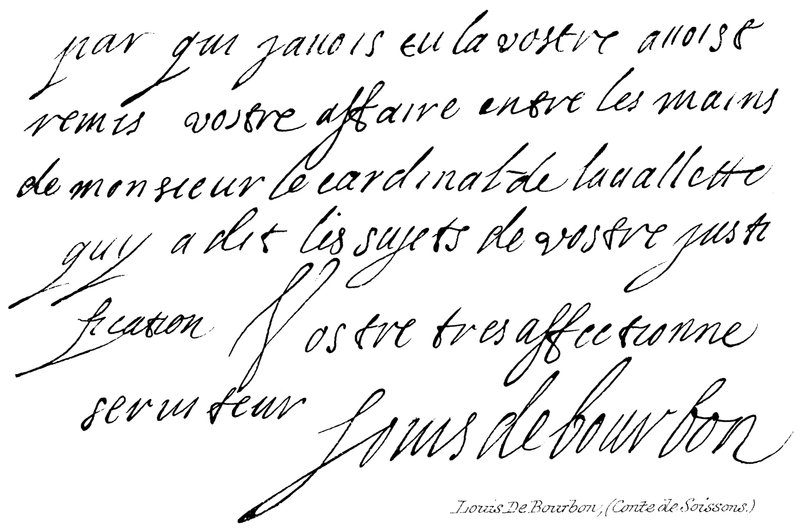 par qui jauois eu la vostre auois
remis vostre affaire entre les mains
de monsieur le cardinal de lauallette
quy a dit les sujets de vostre justi
fication Vostre tres affectionne
seruiteur Louis de bourbon
Louis De Bourbon, (Conte de Soissons.)